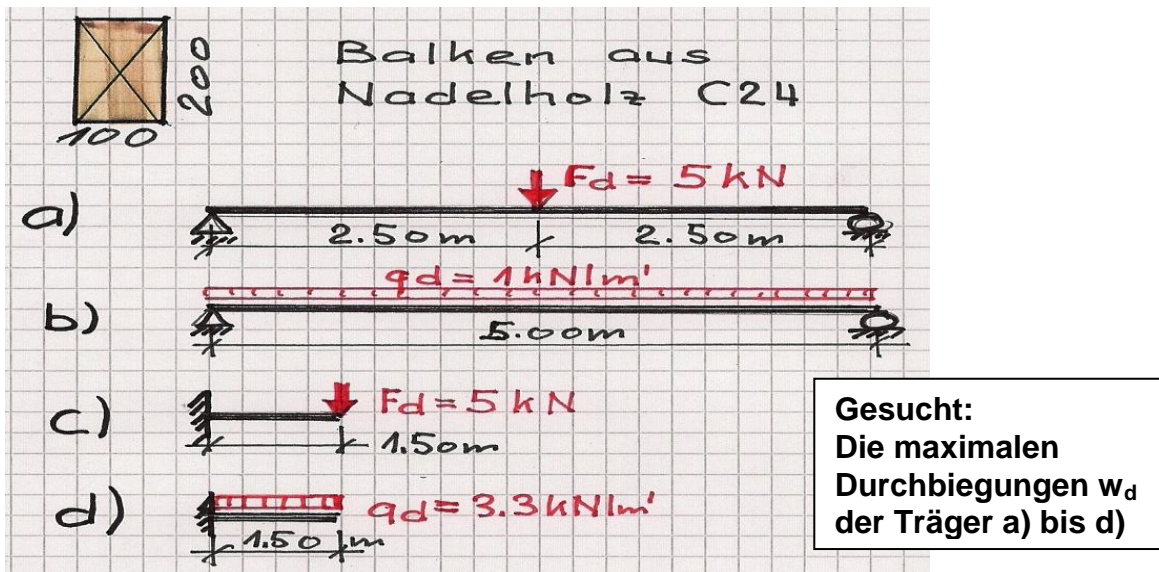 Balken aus
Nadelholz C24
200
100
a)
Fd = 5 kN
2.50m
2.50m
b)
qd = 1 kN/m'
5.00m
c)
Fd = 5 kN
1.50m
d)
qd = 3.3 kN/m'
1.50 m
Gesucht:
Die maximalen
Durchbiegungen wd
der Träger a) bis d)